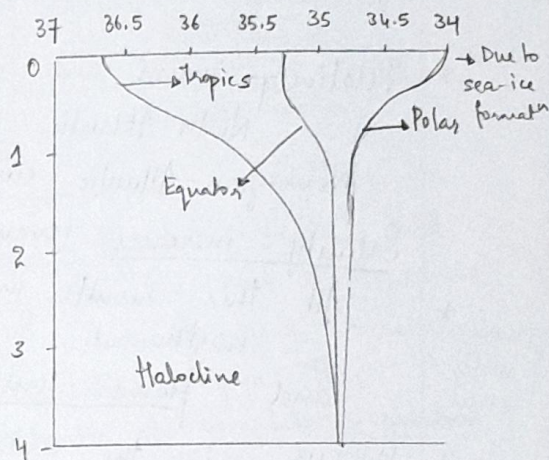 37 36.5 36 35.5 35 34.5 34
0
1
2
3
4
Tropics
Equator
Polar
Due to
sea-ice
Halocline